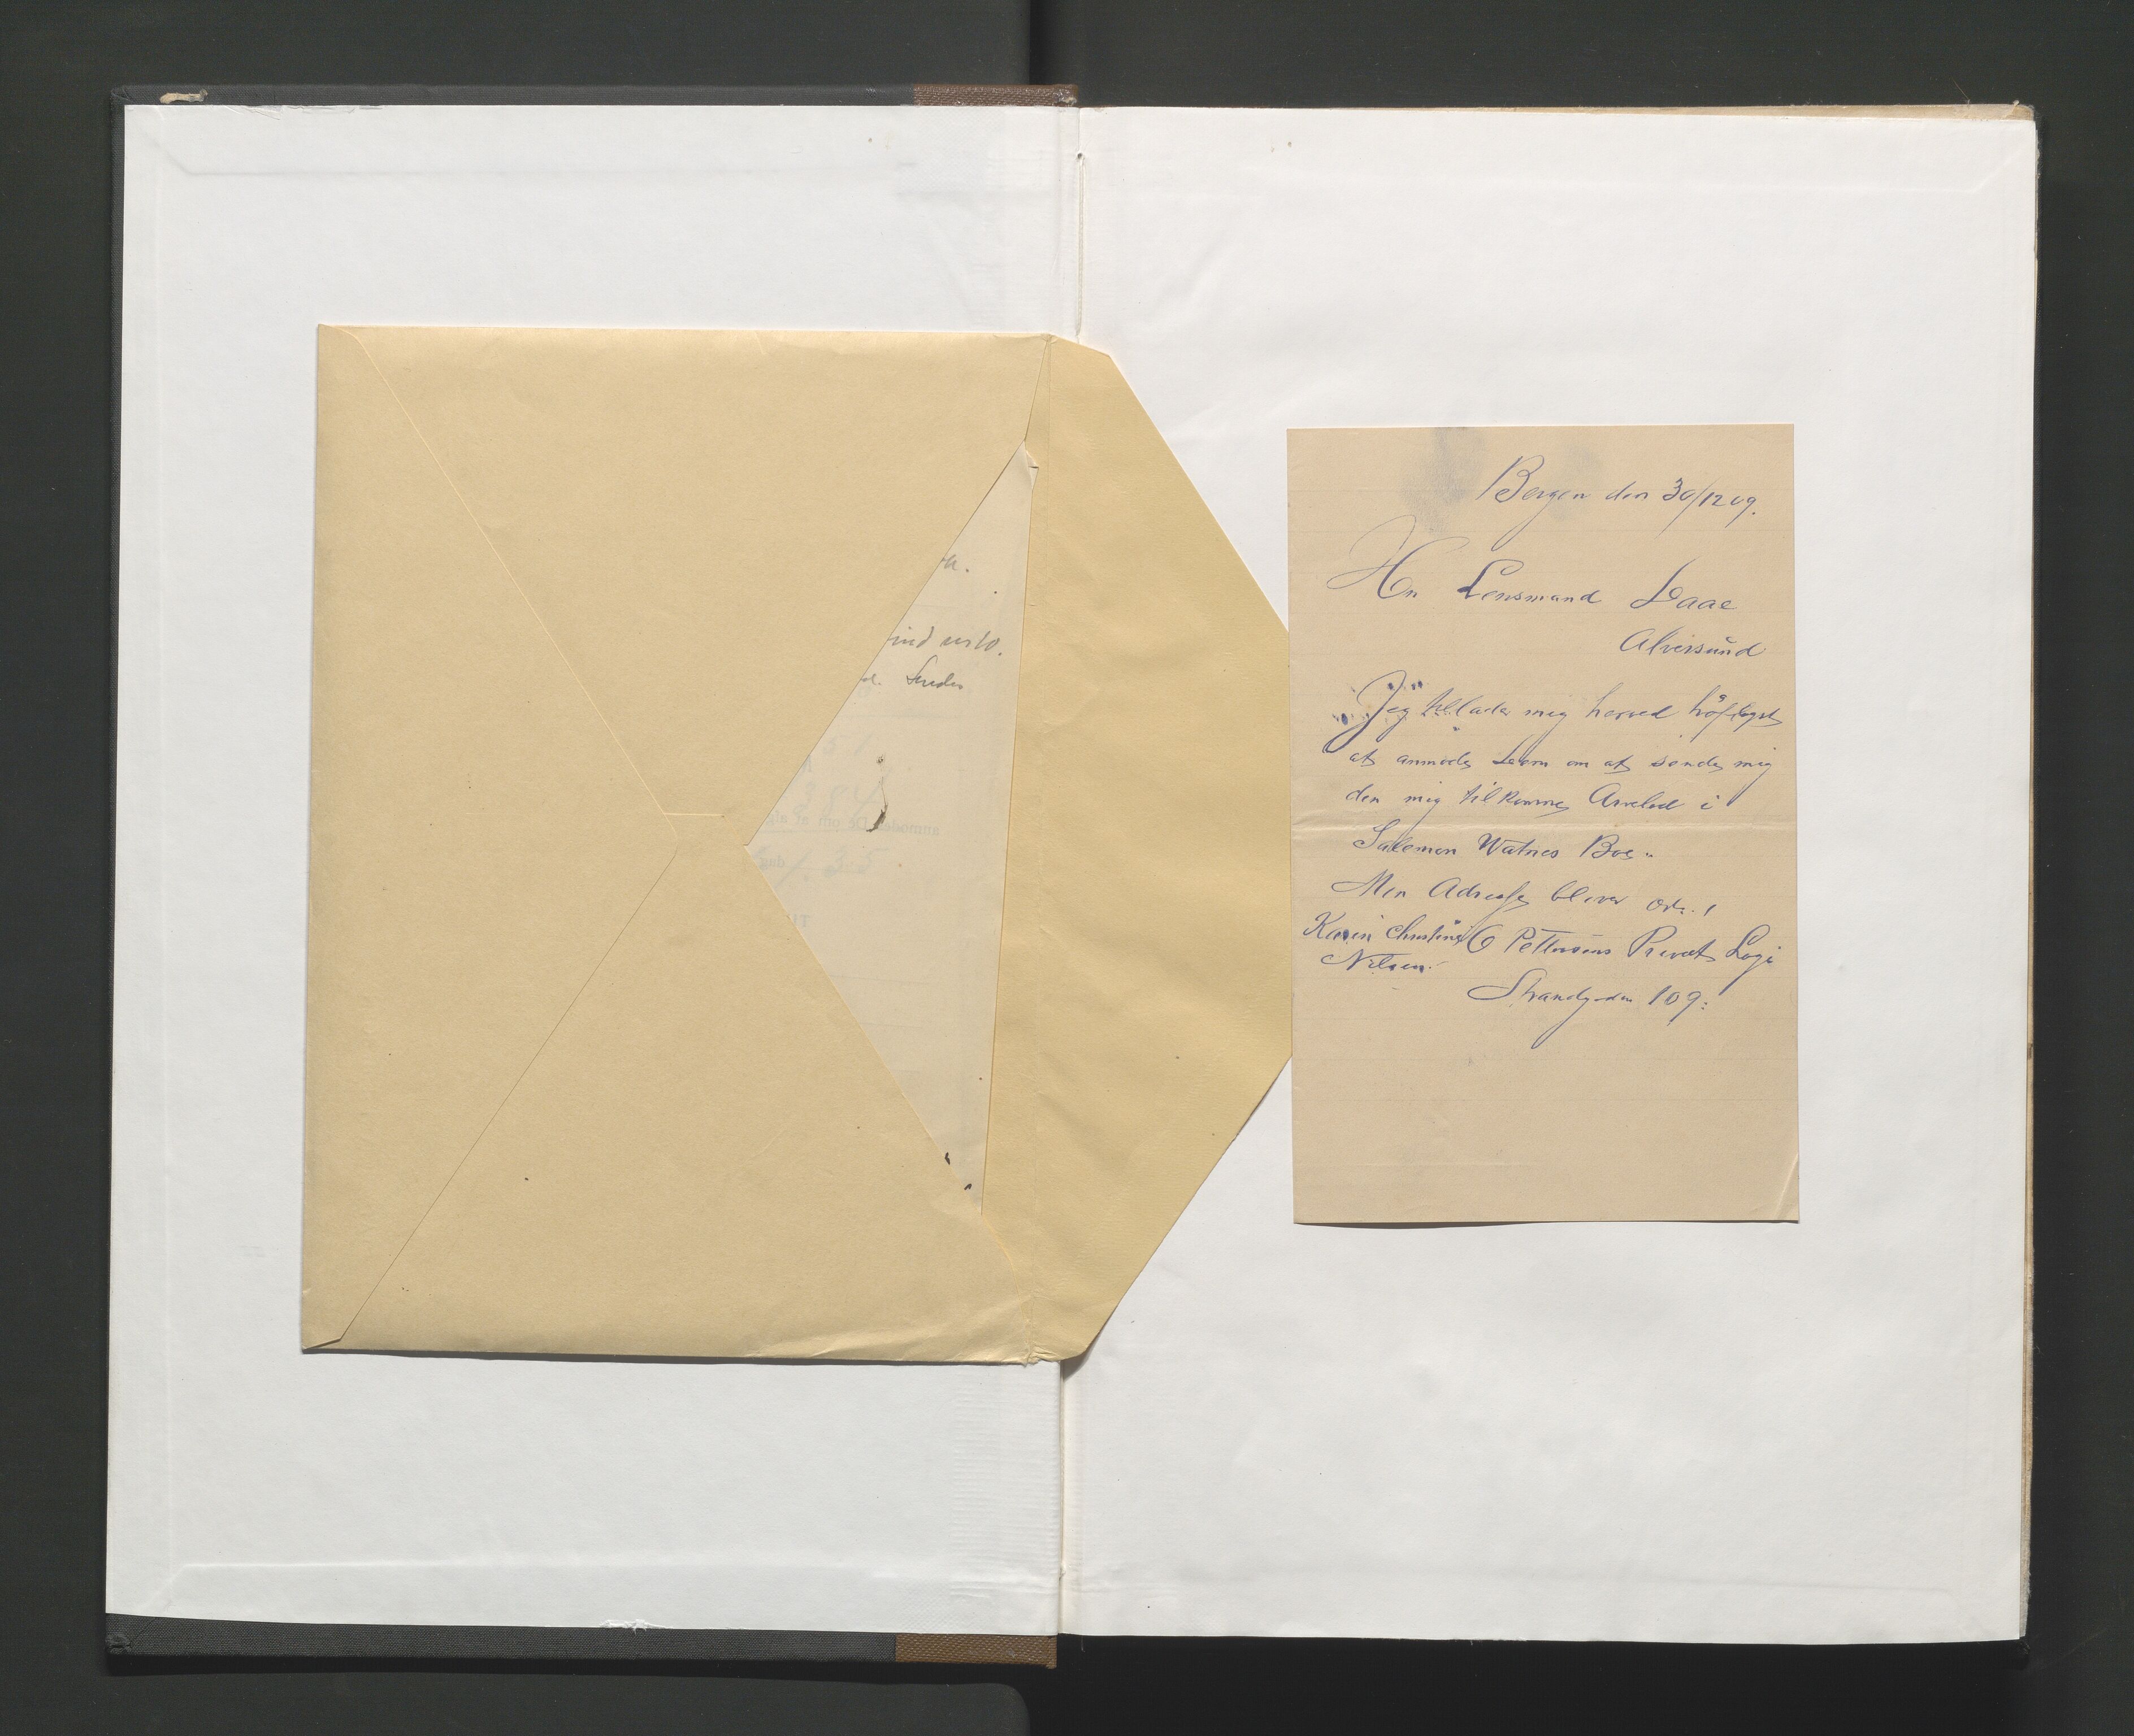 ind
Sendes
anmodes De om at
Bergen den 30/12 09.
Hr Lensmand Daae
Alversund
Jeg tillader mig herved höfligst
at anmode Dem om at sende mig
den mig tilkomne Arvelod i
Salomon Watnes Bo
Min Adresse bliver adr.
Karen Christine O Pettersens Privat Logi
Nilsen.
Strandgaden 109.